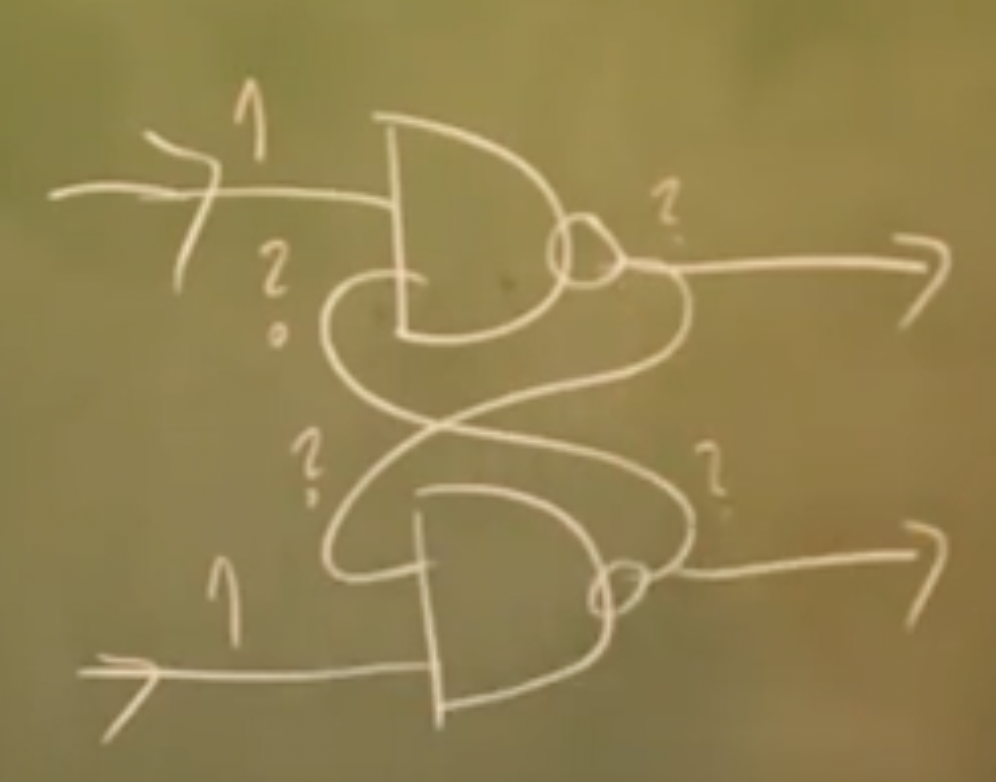 1
?
?
?
?
1